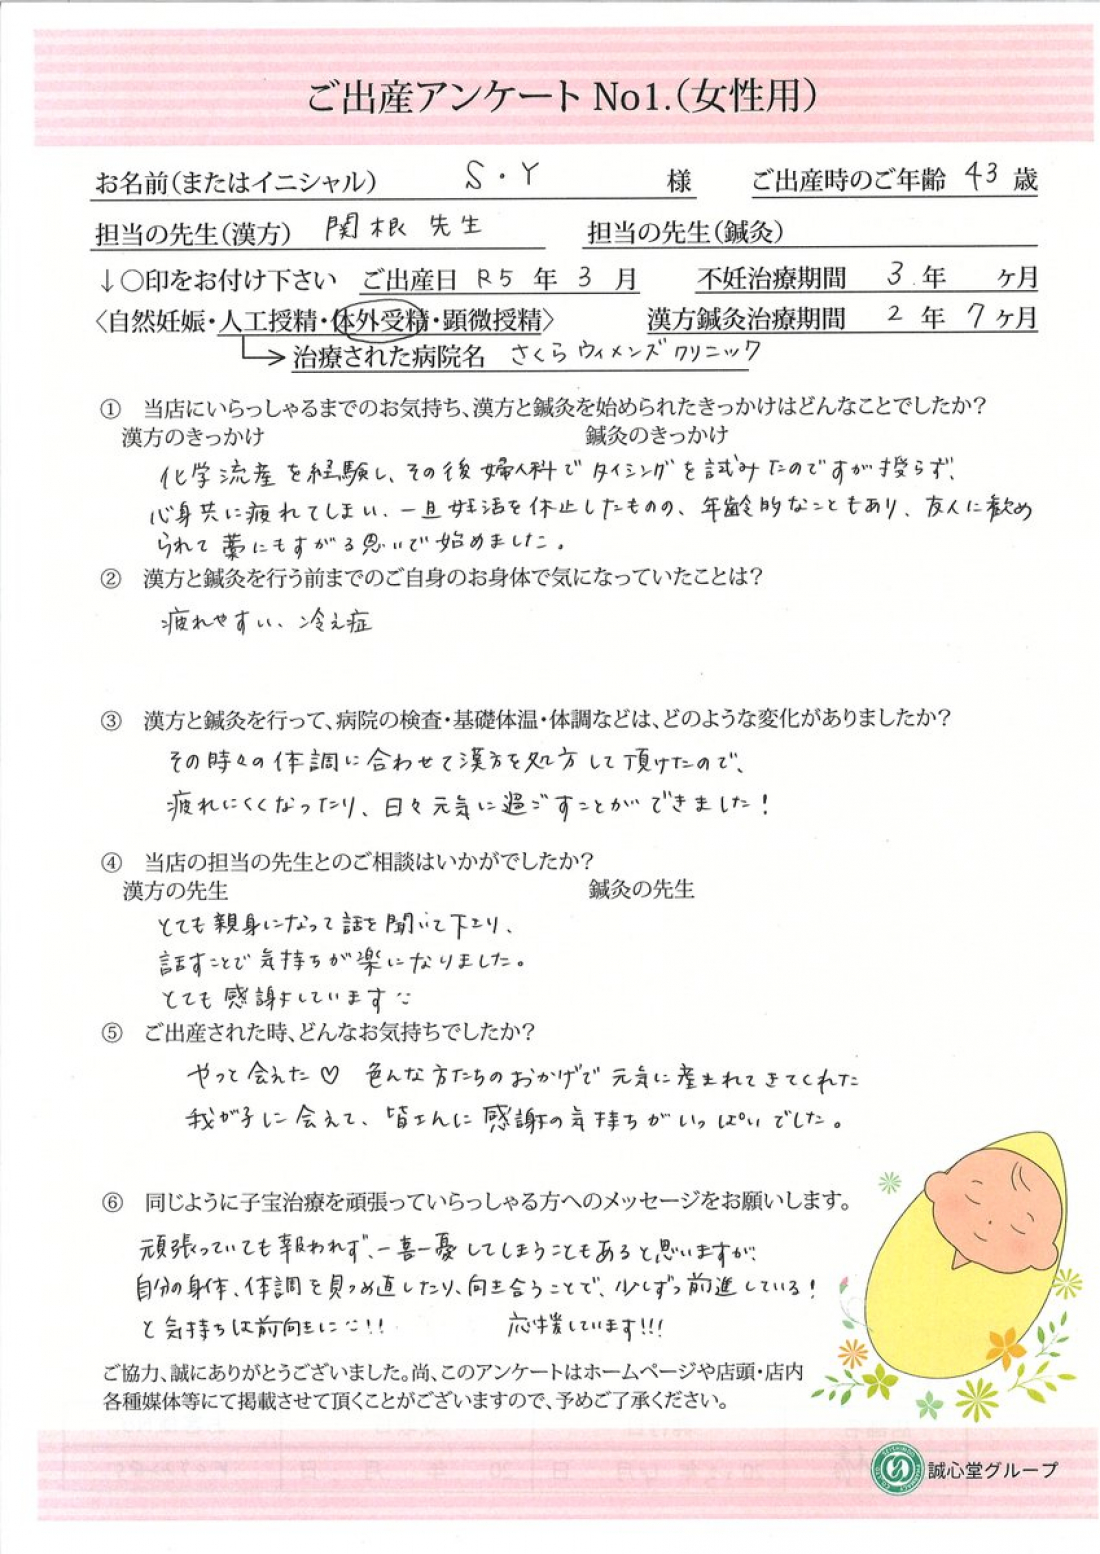 ご出産アンケート No1.(女性用)
お名前(またはイニシャル) S・Y 様 ご出産時のご年齢 43 歳
担当の先生(漢方) 関根 先生 担当の先生(鍼灸)
↓○印をお付け下さい ご出産日 R5 年 3 月 不妊治療期間 3 年 ヶ月
〈自然妊娠・人工授精・体外受精・顕微授精〉 漢方鍼灸治療期間 2 年 7 ヶ月
治療された病院名 さくらウィメンズクリニック
① 当店にいらっしゃるまでのお気持ち、漢方と鍼灸を始められたきっかけはどんなことでしたか?
漢方のきっかけ 鍼灸のきっかけ
化学流産を経験し、その後婦人科でタイミングを試みたのですが授らず、
心身共に疲れてしまい、一旦妊活を休止したものの、年齢的なこともあり、友人に勧め
られて藁にもすがる思いで始めました。
② 漢方と鍼灸を行う前までのご自身のお身体で気になっていたことは?
疲れやすい、冷え症
③ 漢方と鍼灸を行って、病院の検査・基礎体温・体調などは、どのような変化がありましたか?
その時々の体調に合わせて漢方を処方して頂けたので、
疲れにくくなったり、日々元気に過ごすことができました!
④ 当店の担当の先生とのご相談はいかがでしたか?
漢方の先生 鍼灸の先生
とても親身になって話を聞いて下さり、
話すことで気持ちが楽になりました。
とても感謝しています
⑤ ご出産された時、どんなお気持ちでしたか?
やっと会えた♡ 色んな方たちのおかげで元気に産まれてきてくれた
我が子に会えて、皆さんに感謝の気持ちがいっぱいでした。
⑥ 同じように子宝治療を頑張っていらっしゃる方へのメッセージをお願いします。
頑張っていても報われず、一喜一憂してしまうこともあると思いますが、
自分の身体、体調を見つめ直したり、向き合うことで、少しずつ前進している!
と気持ちは前向きに!! 応援しています!!!
ご協力、誠にありがとうございました。尚、このアンケートはホームページや店頭・店内
各種媒体等にて掲載させて頂くことがございますので、予めご了承ください。
誠心堂グループ